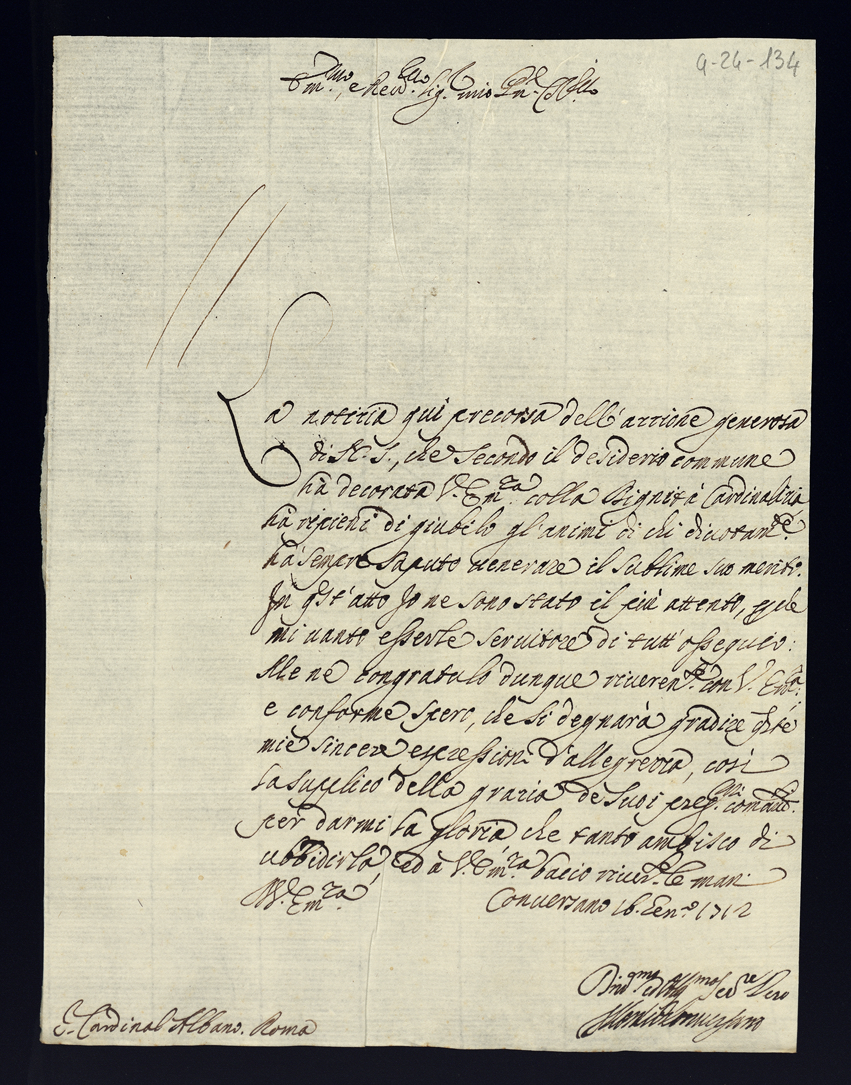 9-24-134
Em.mo, e Rev.mo Sig.r mio P.ne Col.mo
La notitia qui precorsa dell'attione generosa
di N. S., che secondo il desiderio commune
hà decorata V. Em.za colla Dignità Cardinalizia
hà ripieni di giubilo gl'animi di chi divotam.te
hà sempre saputo venerare il sublime suo merito.
In qst'atto Io ne sono stato il più attento, che
mi vanto esserle servitore di tutt'ossequio:
Me ne congratulo dunque riverent.te con V. Em.za;
e conforme spero, che si degnarà gradire qste
mie sincere espressioni d'allegrezza, così
la supplico della grazia de suoi preg.mi comandi
per darmi la gloria che tanto ambisco di
ubbidirla, ed à V. Em.za bacio river.te le mani
V. Em.za
Conversano 16. Gen.o 1712
Div.mo ed Obl.mo Ser.re Vero
S. Cardinal Albano. Roma